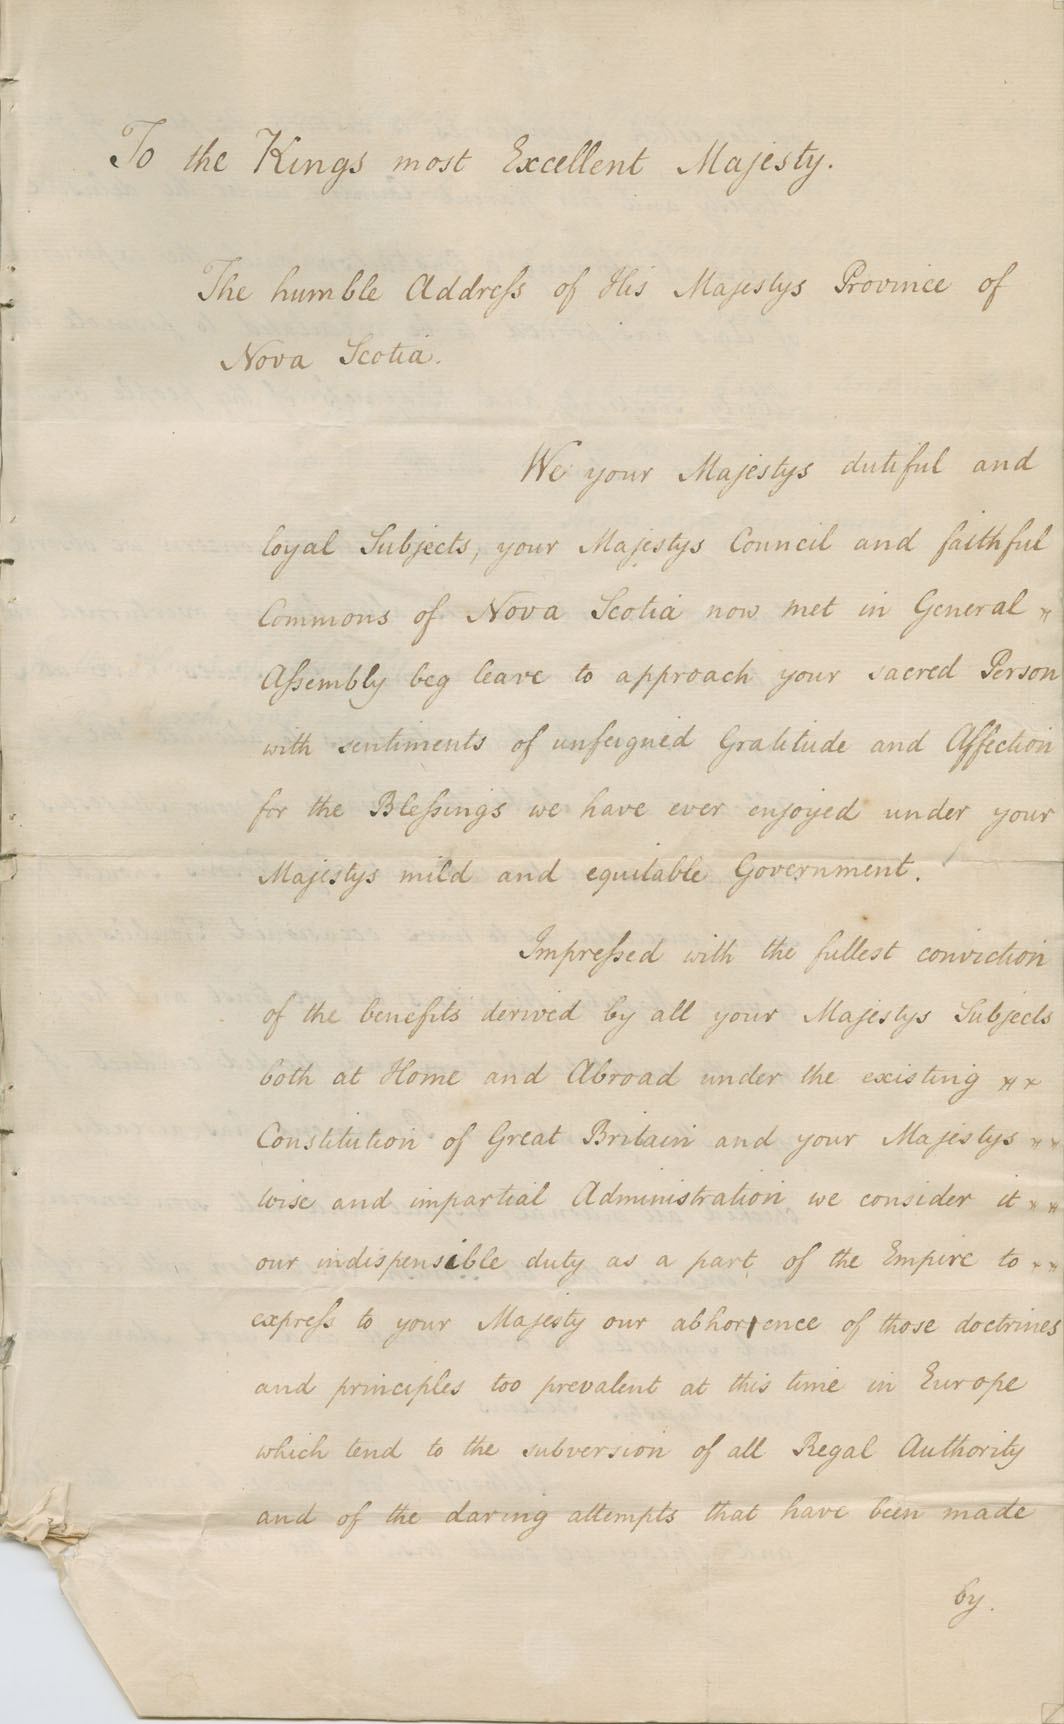 To the Kings most Excellent Majesty.
The humble Addreſs of His Majestys Province of
Nova Scotia.
We your Majestys dutiful and
loyal Subjects, your Majestys Council and faithful
Commons of Nova Scotia now met in General "
Aſsembly beg leave to approach your sacred Person
with sentiments of unfeigned Gratitude and Affection
for the Bleſsings we have ever enjoyed under your
Majestys mild and equitable Government.
Impreſsed with the fullest conviction
of the benefits derived by all your Majestys Subjects
both at Home and Abroad under the existing " "
Constitution of Great Britain and your Majestys " "
wise and impartial Administration we consider it " "
our indispensible duty as a part of the Empire to " "
expreſs to your Majesty our abhorrence of those doctrines
and principles too prevalent at this time in Europe
which tend to the subversion of all Regal Authority
and of the daring attempts that have been made
by.